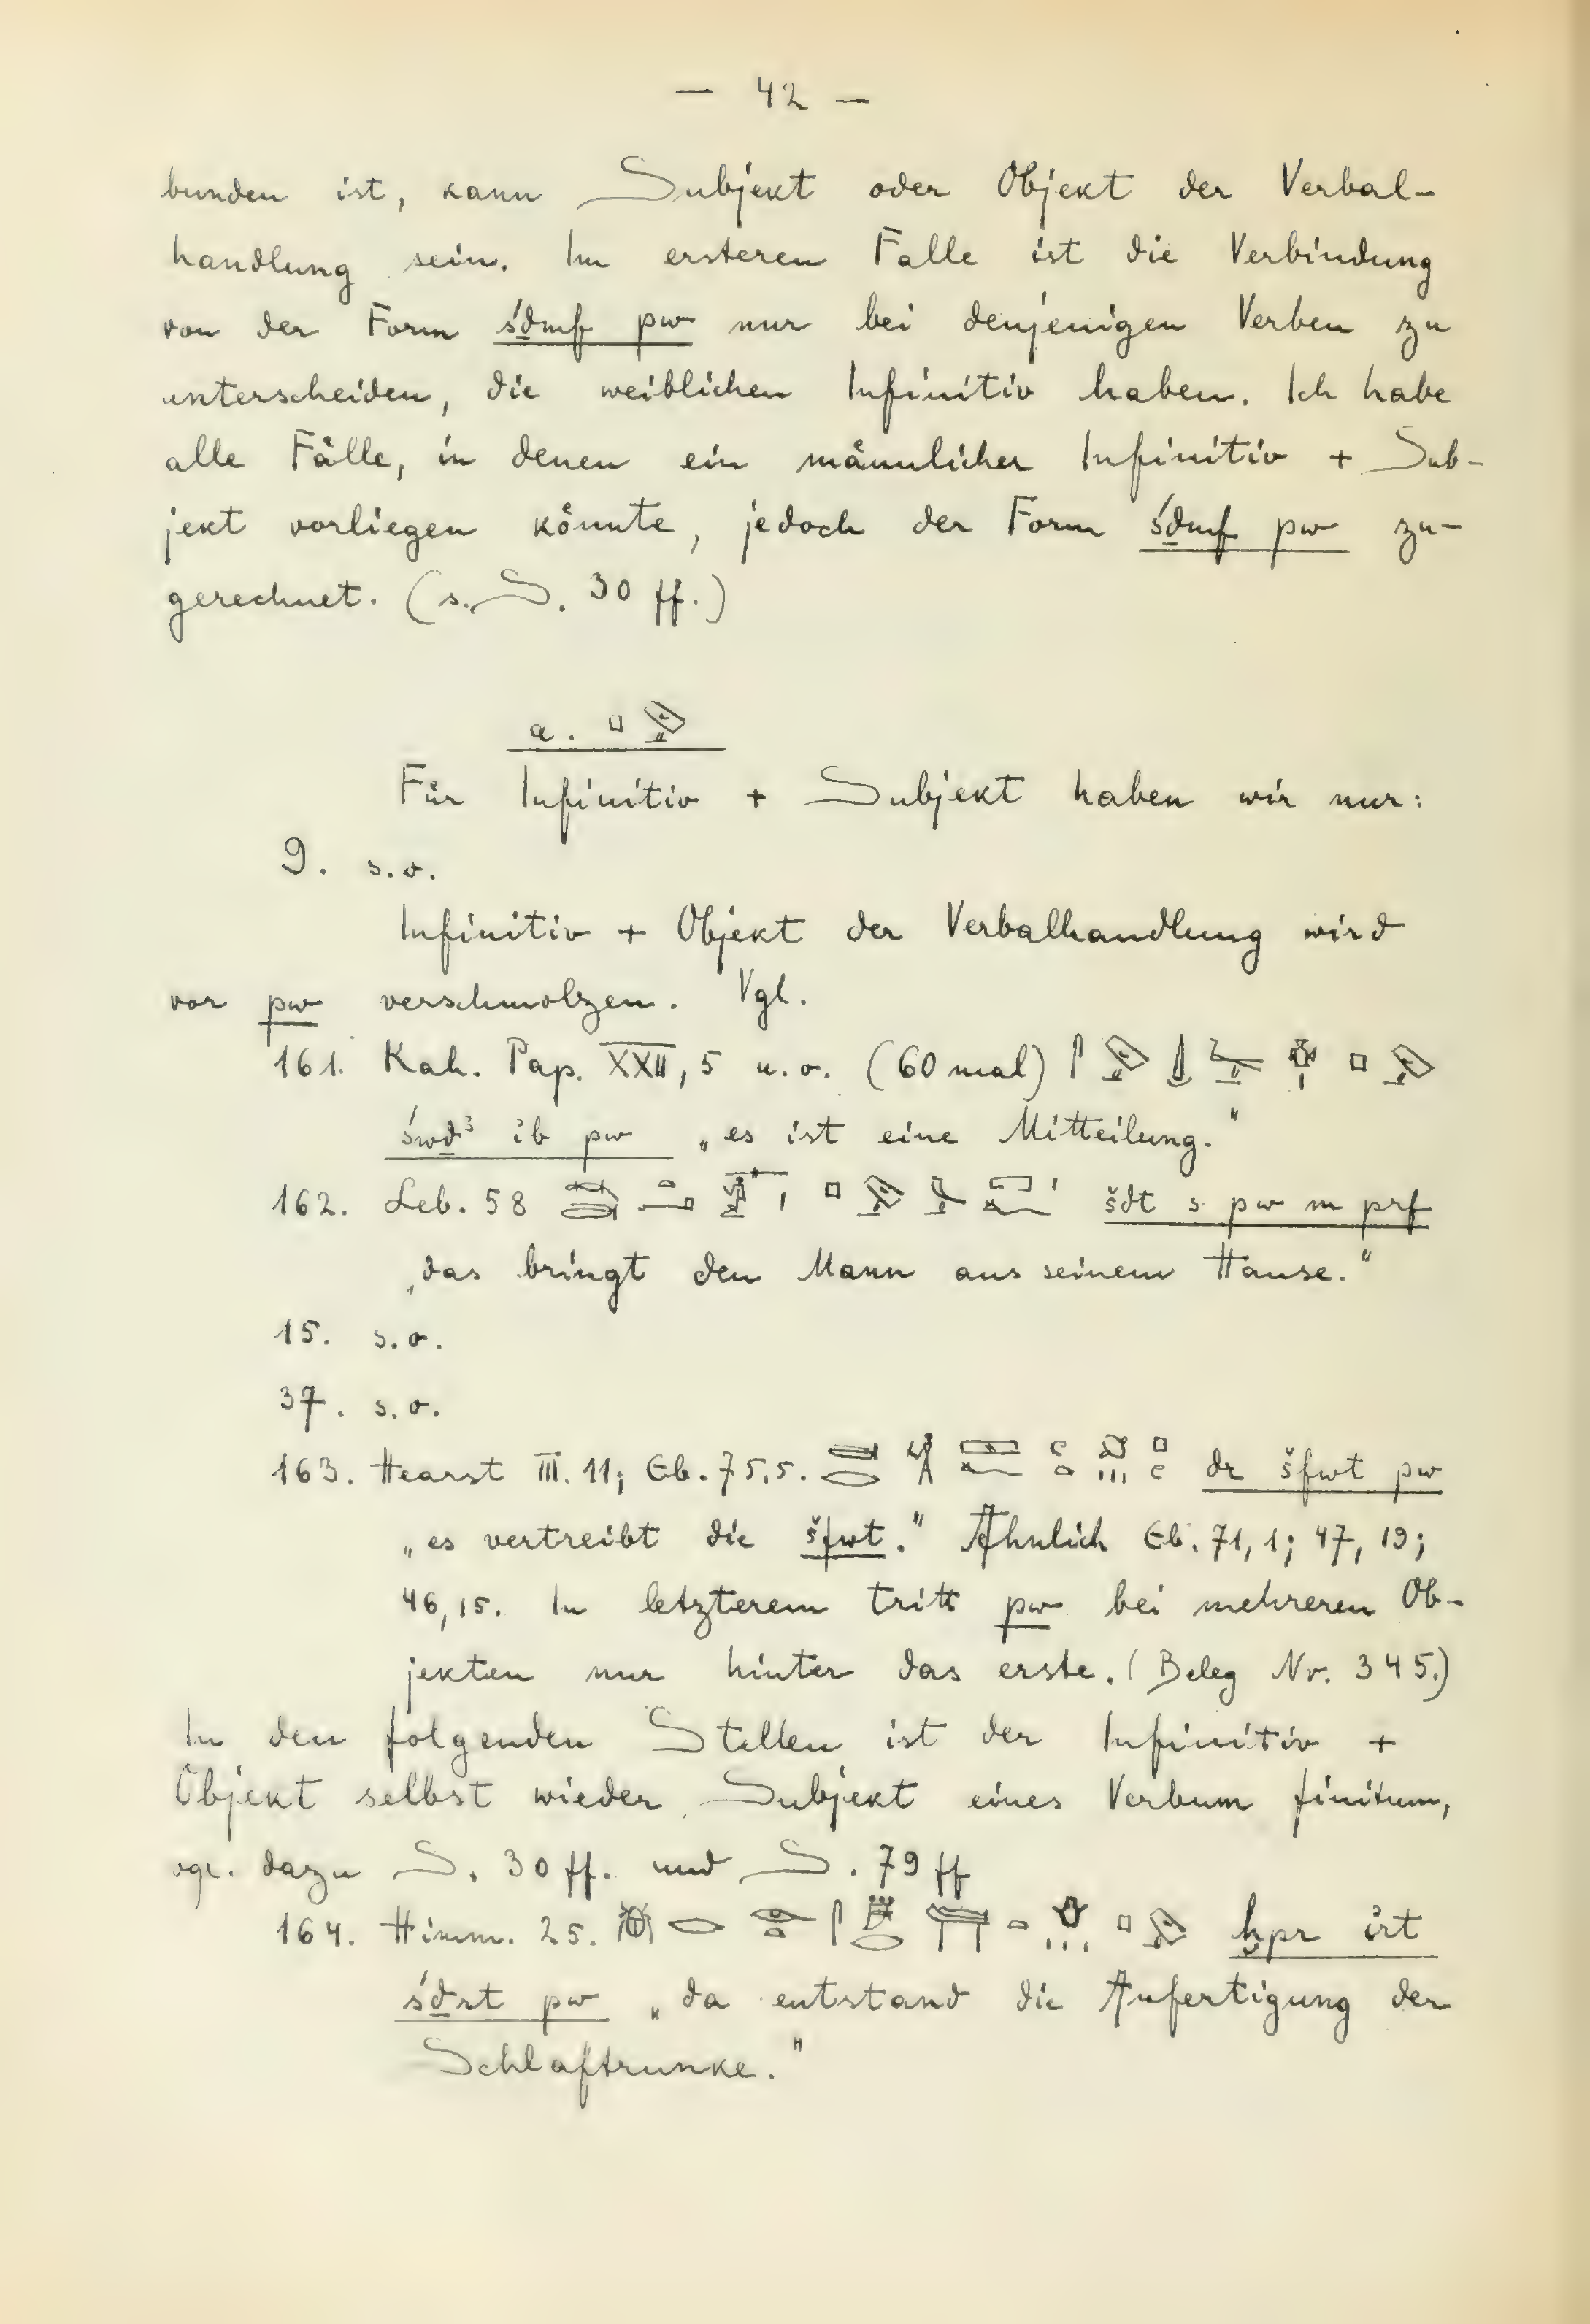 — 42 —
bunden ist, kann Subjekt oder Objekt der Verbal-
handlung sein. Im ersteren Falle ist die Verbindung
von der Form śḏmf pw nur bei denjenigen Verben zu
unterscheiden, die weiblichen Infinitiv haben. Ich habe
alle Fälle, in denen ein männlicher Infinitiv + Sub-
jekt vorliegen könnte, jedoch der Form śḏmf pw zu-
gerechnet. (s. S. 30 ff.)
a.
Für Infinitiv + Subjekt haben wir nur:
9. s.o.
Infinitiv + Objekt der Verbalhandlung wird
vor pw verschmolzen. Vgl.
161. Kah. Pap. XXII, 5 u.o. (60 mal)
śwḏꜣ ib pw „es ist eine Mitteilung."
162. Leb. 58 šdt s pw m prf
„das bringt den Mann aus seinem Hause."
15. s.o.
37. s.o.
163. Hearst III. 11; Eb. 75,5. dr šfwt pw
„es vertreibt die šfwt." Ähnlich Eb. 71,1; 47, 19;
46,15. In letzterem tritt pw bei mehreren Ob-
jekten nur hinter das erste. (Beleg Nr. 345.)
In den folgenden Stellen ist der Infinitiv +
Objekt selbst wieder Subjekt eines Verbum finitum,
vgl. dazu S. 30 ff. und S. 79 ff
164. Himm. 25. ḫpr irt
śḏrt pw „da entstand die Anfertigung der
Schlaftrunke."